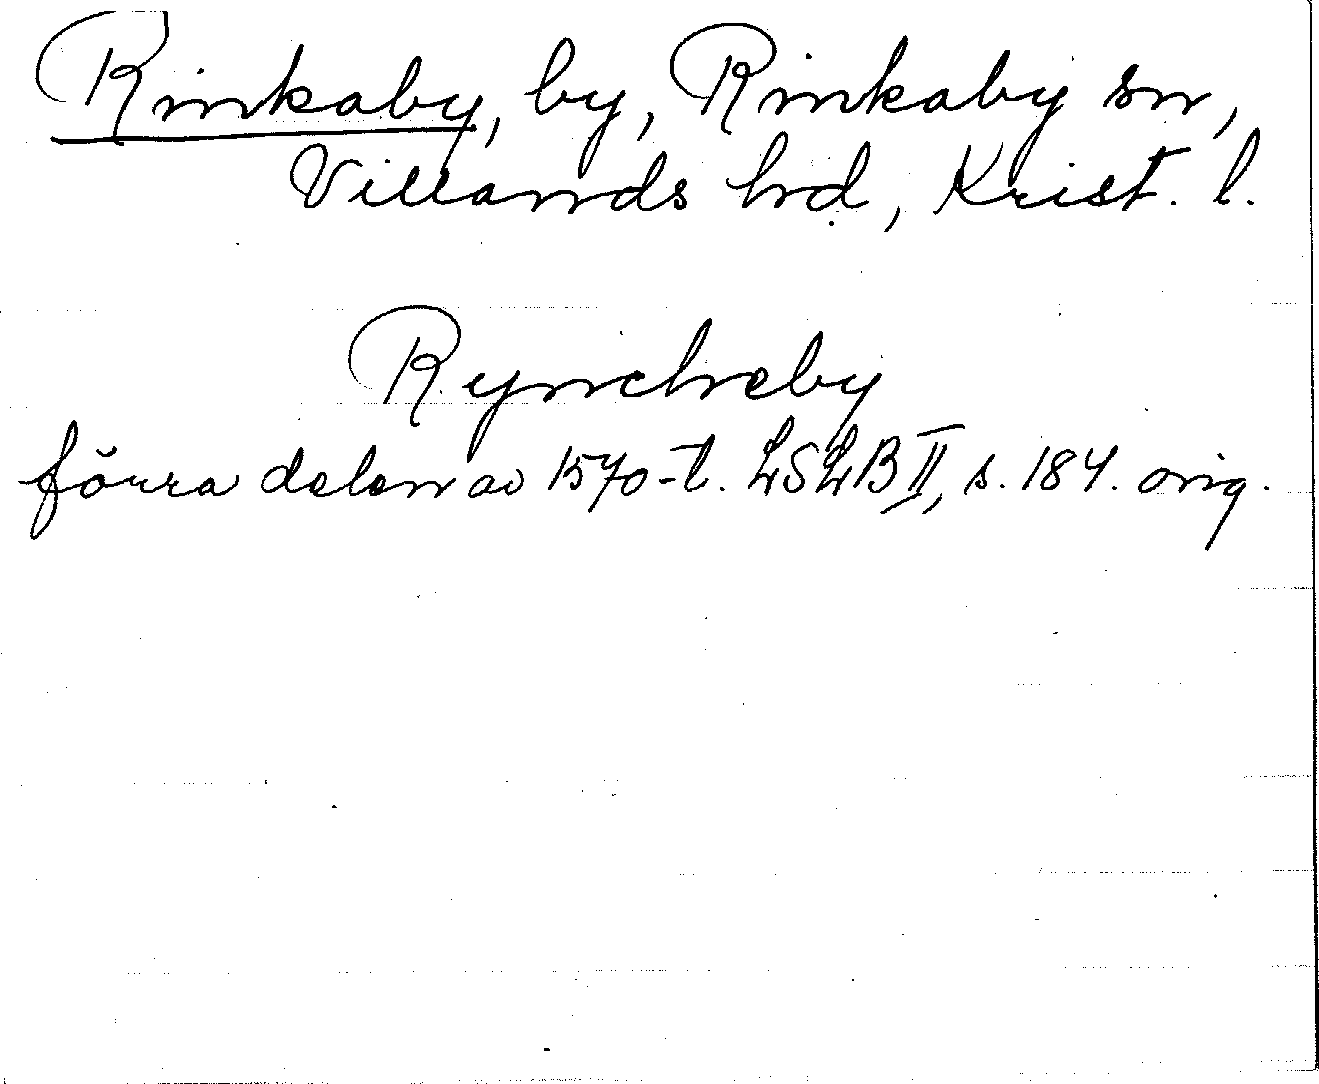 Rinkaby, by, Rinkaby sn,
Villands hd, Krist. l.
Ryncheby
förra delen av 1570-t. LSLB II, s. 184. orig.